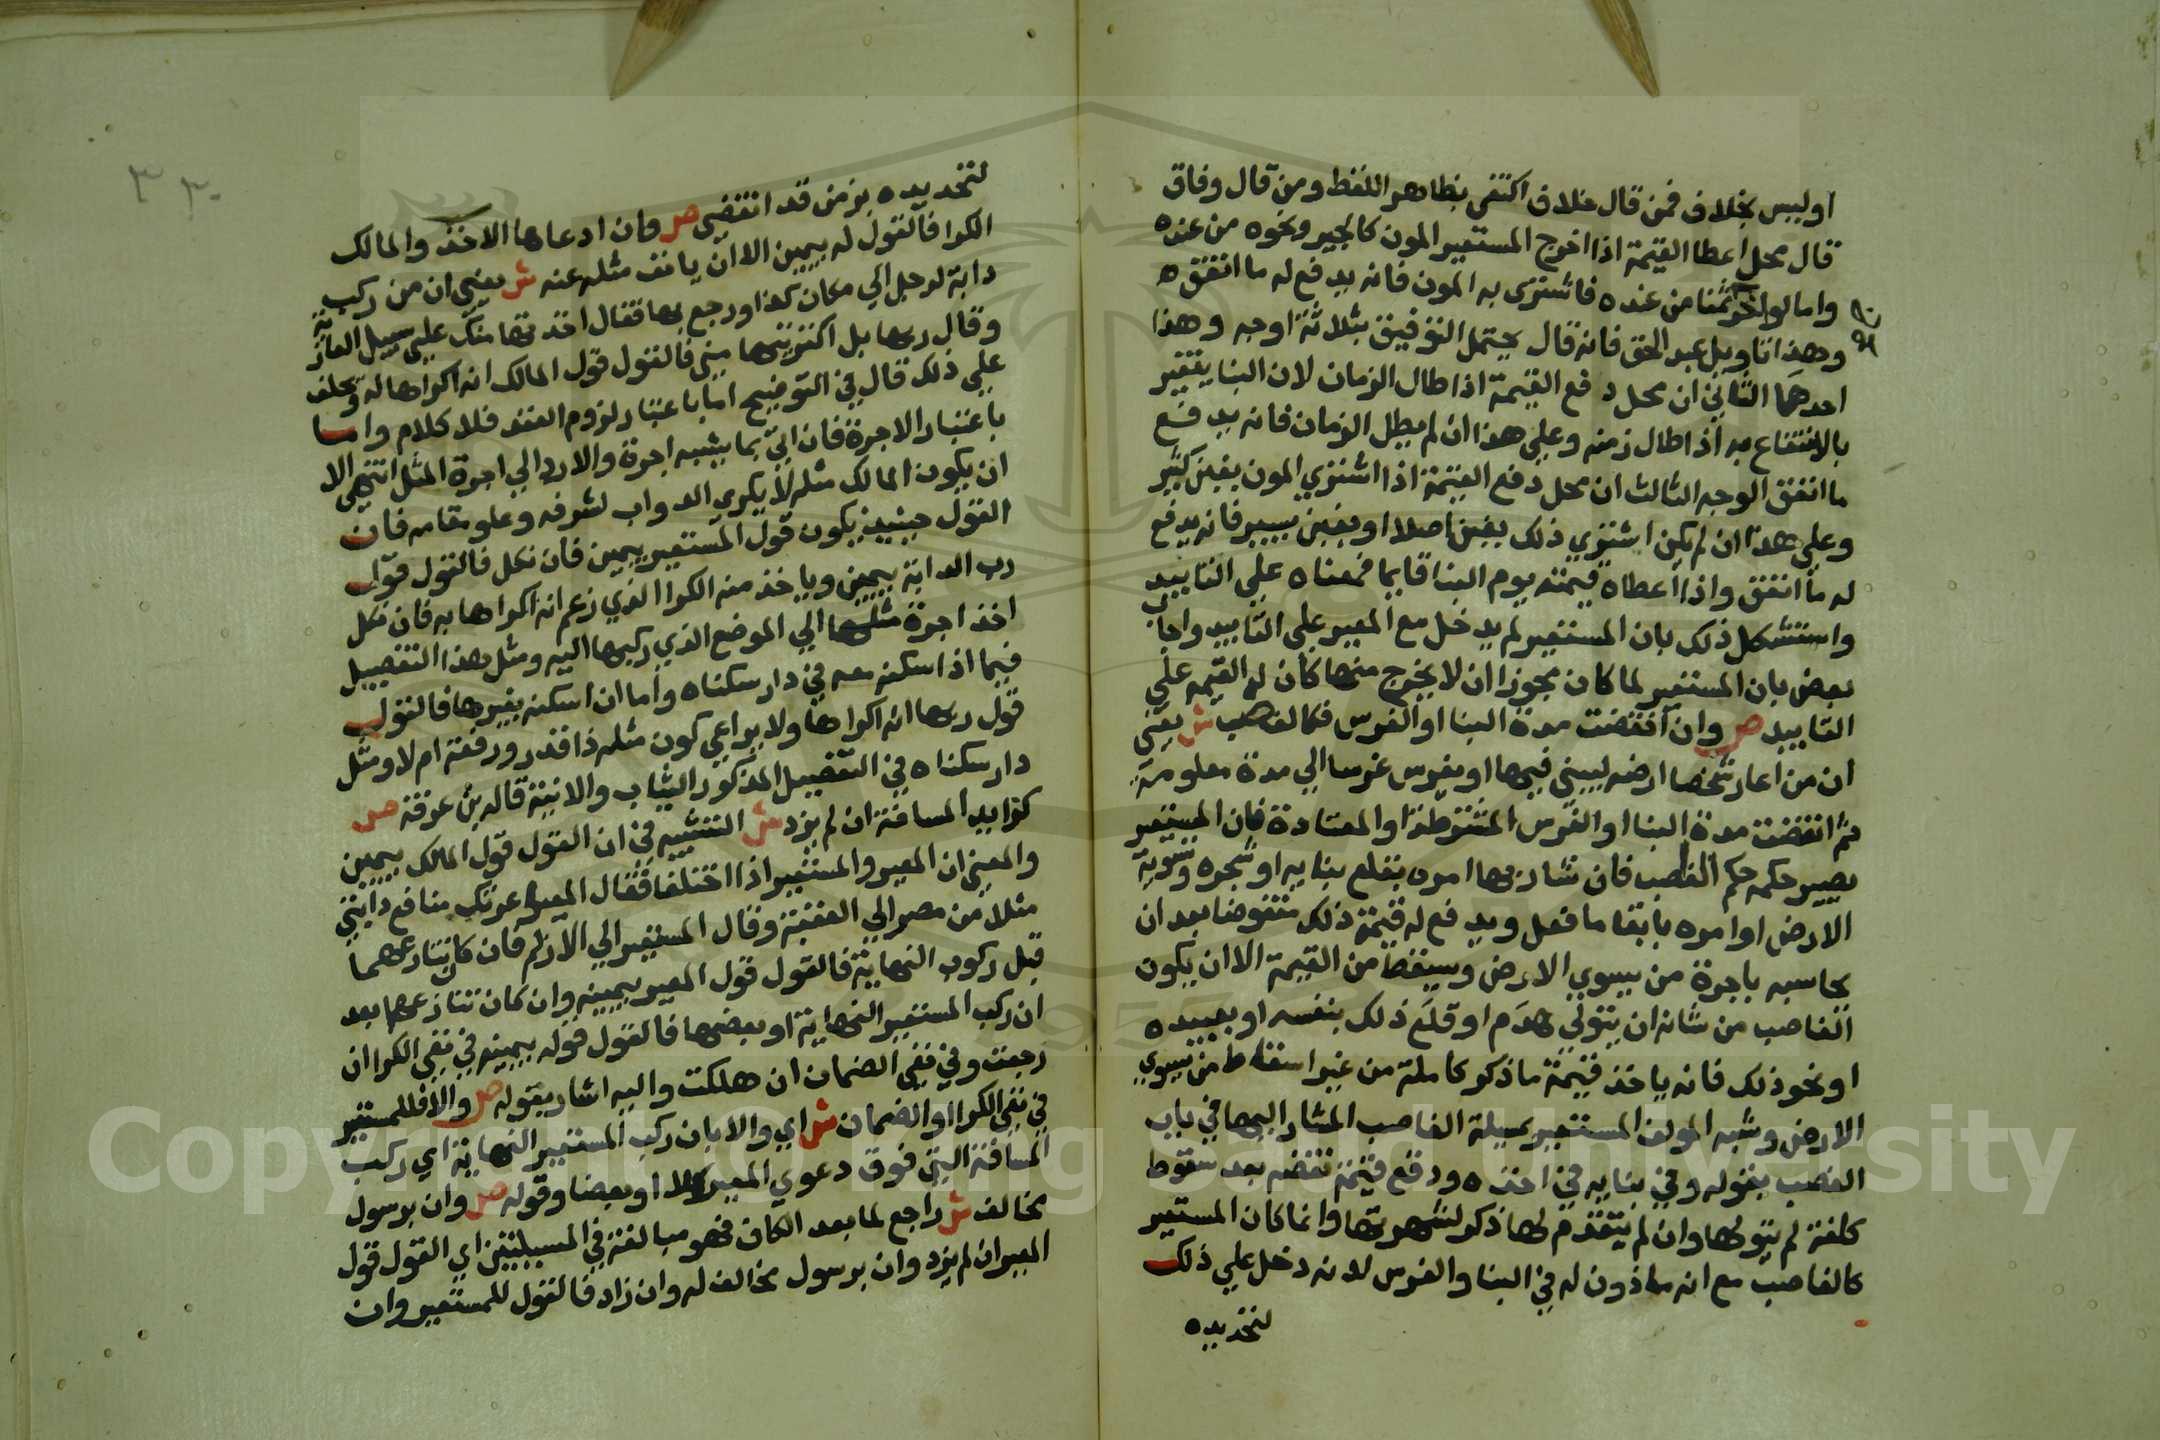 او ليس بخلاف فمن قال خلاف اكتفى بظاهر اللفظ ومن قال وفاق
قال محل اعطا القيمة اذا اخرج المستعير المون كالجير ونحوه من عنده
واما لو اخرج ثمنا من عنده فاشترى به المون فانه يدفع له ما انفق ه
وهذا تاويل عبد الحق فانه قال يحتمل التوفيق بثلاثة اوجه وهذا
احدهما الثاني ان محل دفع القيمة اذا طال الزمان لان البنا يتغير
بالانتفاع به اذا طال زمنه وعلى هذا ان لم يطل الزمان فانه يدفع
ما انفق الوجه الثالث ان محل دفع القيمة اذا اشترى المون بغبن كثير
وعلى هذا ان لم يكن اشترى ذلك بغبن اصلا او بغبن يسير فانه يدفع
له ما انفق واذا اعطاه قيمته يوم البنا قايما فمعناه على التابيد
واستشكل ذلك بان المستعير لم يدخل مع المعير على التابيد واجاب
بعض بان المستعير لما كان مجوزا ان لا يخرج منها كان له القيمة على
التابيد ص وان انقضت مدة البنا او الغرس فكالغصب ش يعني
ان من اعار شخصا ارضه ليبني فيها او يغرس غرسا الي مدة معلومة
ثم انقضت مدة البنا او الغرس المشترطة او المعتادة فان المستعير
يصير حكمه حكم الغاصب فان شا ربها امره بقلع بنايه او شجره وتسوية
الارض او امره بابقا ما فعل ويدفع له قيمة ذلك منقوضا بعد ان
يحاسبه باجرة من يسوي الارض ويسقط من القيمة الا ان يكون
الغاصب من شانه ان يتولى هدم او قلع ذلك بنفسه او بعبيده
او نحو ذلك فانه ياخذ قيمة ما ذكر كاملة من غير اسقاط من يسوي
الارض وشبه المولف المستعير بمسيلة الغاصب المشار اليها في باب
الغصب بقوله وفي بنايه في اخذه ودفع قيمة نقضه بعد سقوط
كلفة لم يتولها وان لم يتقدم لها ذكر لشهرتها وانما كان المستعير
كالغاصب مع انه ماذون له في البنا والغرس لانه دخل على ذلك
لتحديده
لتحديده بزمن قد انقضى ص وان ادعاها الاخذ والمالك
الكرا فالقول له بيمين الا ان يانف مثله عنه ش يعني ان من ركب
دابة لرجل الي مكان كذا ورجع بها فقال اخذتها منك على سبيل العارية
وقال ربها بل اكتريتها مني فالقول قول المالك انه اكراها له ويحلف
على ذلك قال في التوضيح اما باعتبار لزوم العقد فلا كلام واما
باعتبار الاجرة فان اتي بما يشبه اجرة والا رد الي اجرة المثل انتهى الا
ان يكون المالك مثله لا يكري الدواب لشرفه وعلو مقامه فان
القول حينيذ يكون قول المستعير بيمين فان نكل فالقول قول
رب الدابة بيمين وياخذ منه الكرا الذي زعم انه اكراها به فان نكل
اخذ اجرة مثلها الي الموضع الذي ركبها اليه ومثل هذا التفصيل
فيما اذا اسكنه معه في دار سكناه واما ان اسكنه بغيرها فالقول
قول ربها انه اكراها ولا يراعي كون مثله ذا قدر ورفعة ام لا ومثل
دار سكناه في التفصيل المذكور الثياب والانية قاله بن عرفة ص
كزايد المسافة ان لم يزد ش التشبيه في ان القول قول المالك بيمين
والمعنى ان المعير والمستعير اذا اختلفا فقال المعير اعرتك منافع دابتي
مثلا من مصر الي العقبة وقال المستعير الي الازلم فان كان تنازعهما
قبل ركوب النهاية فالقول قول المعير بيمينه وان كان تنازعهما بعد
ان ركب المستعير النهاية او بعضها فالقول قوله بيمينه في نفي الكرا ان
رجعت وفي نفي الضمان ان هلكت واليه اشار بقوله ص والا فللمستعير
في نفي الكرا او الضمان ش اي والا بان ركب المستعير النهاية اي ركب
المسافة التي فوق دعوي المعير كلا او بعضا وقوله ص وان برسول
مخالف ش راجع لما بعد الكاف فهو مبالغة في المسيلتين اي القول قول
المعير ان لم يزد وان برسول مخالف له وان زاد فالقول للمستعير وان